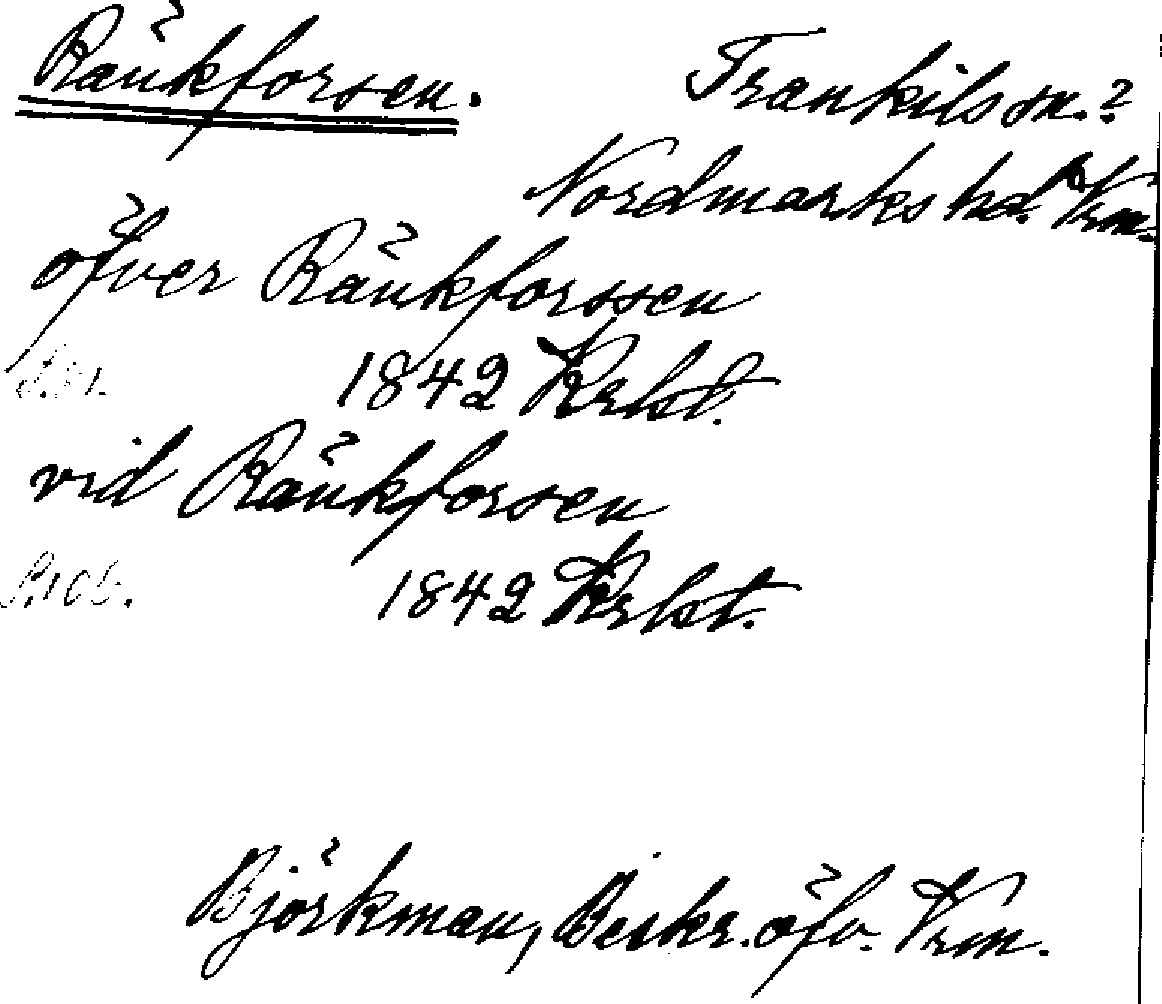 Ränkforsen. Trankilson.?
Nordmarks hd. Vrm.
öfver Ränkforssen
1842 Krlst.
vid Ränkforsen
1842 Krlst.
Björkman, Beskr. öfv. Vrm.